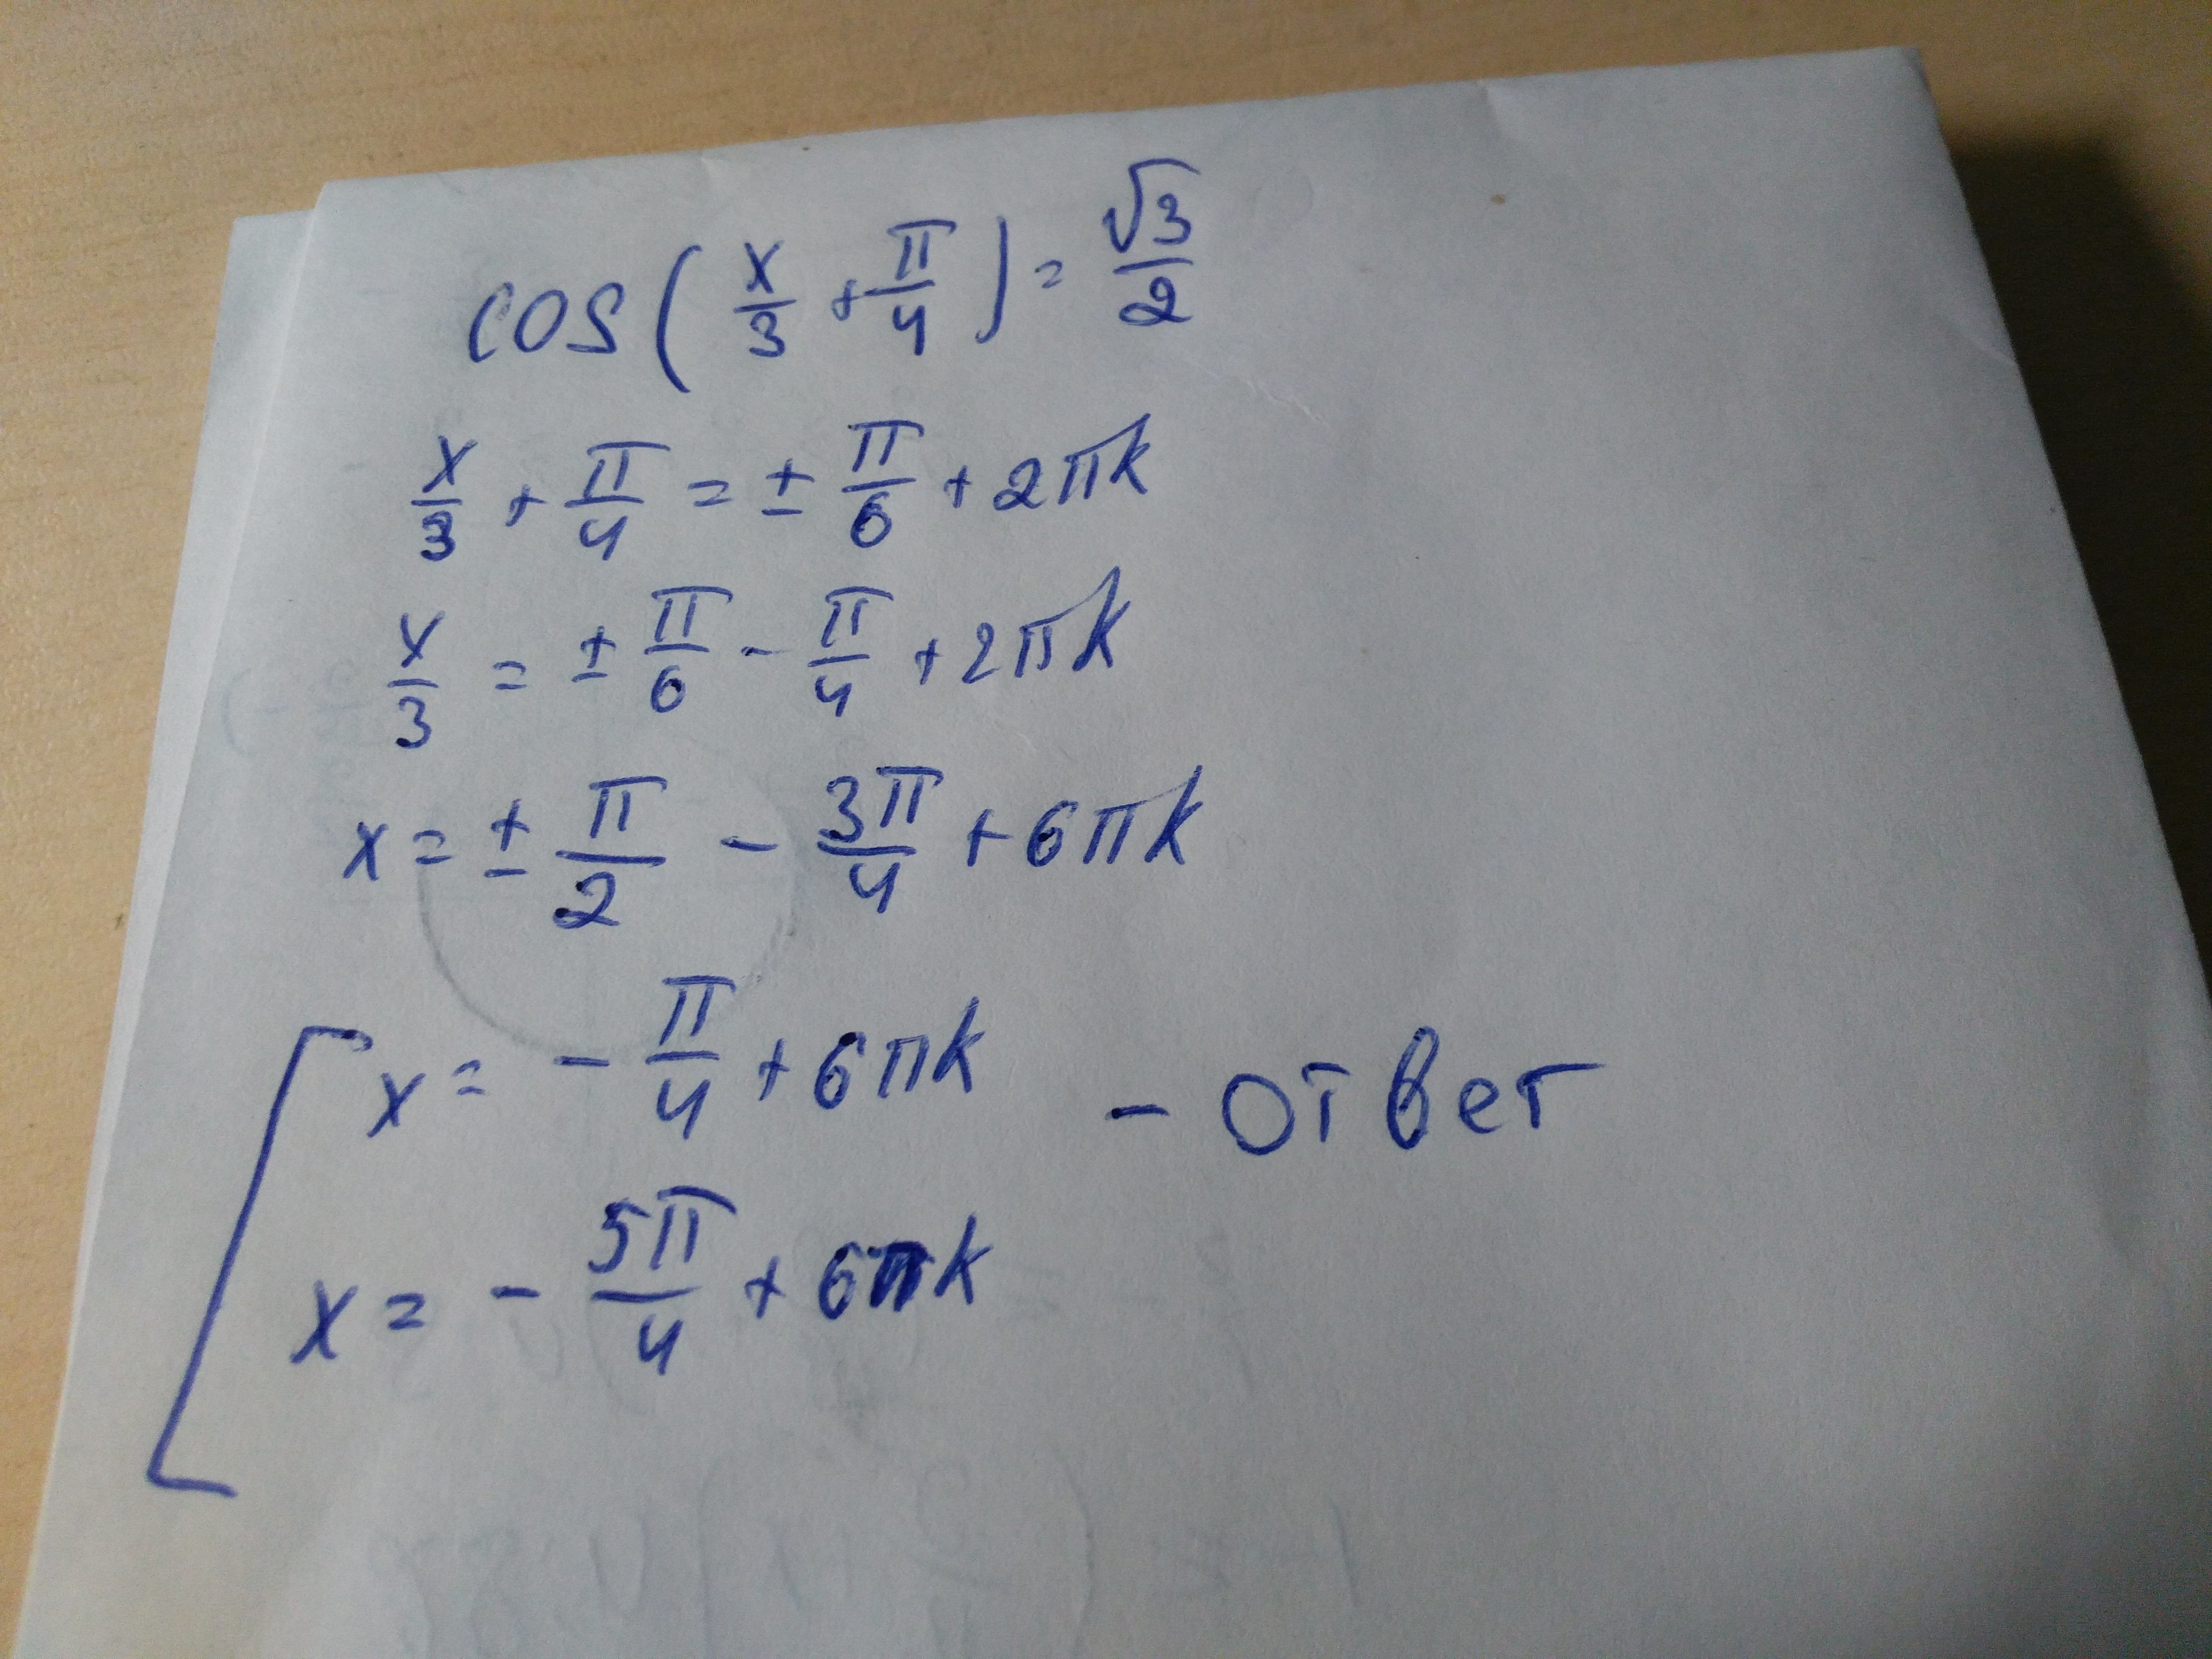 cos(x/3 + π/4) = √3/2
x/3 + π/4 = ± π/6 + 2πk
x/3 = ± π/6 - π/4 + 2πk
x = ± π/2 - 3π/4 + 6πk
[ x = - π/4 + 6πk - ответ
x = - 5π/4 + 6πk